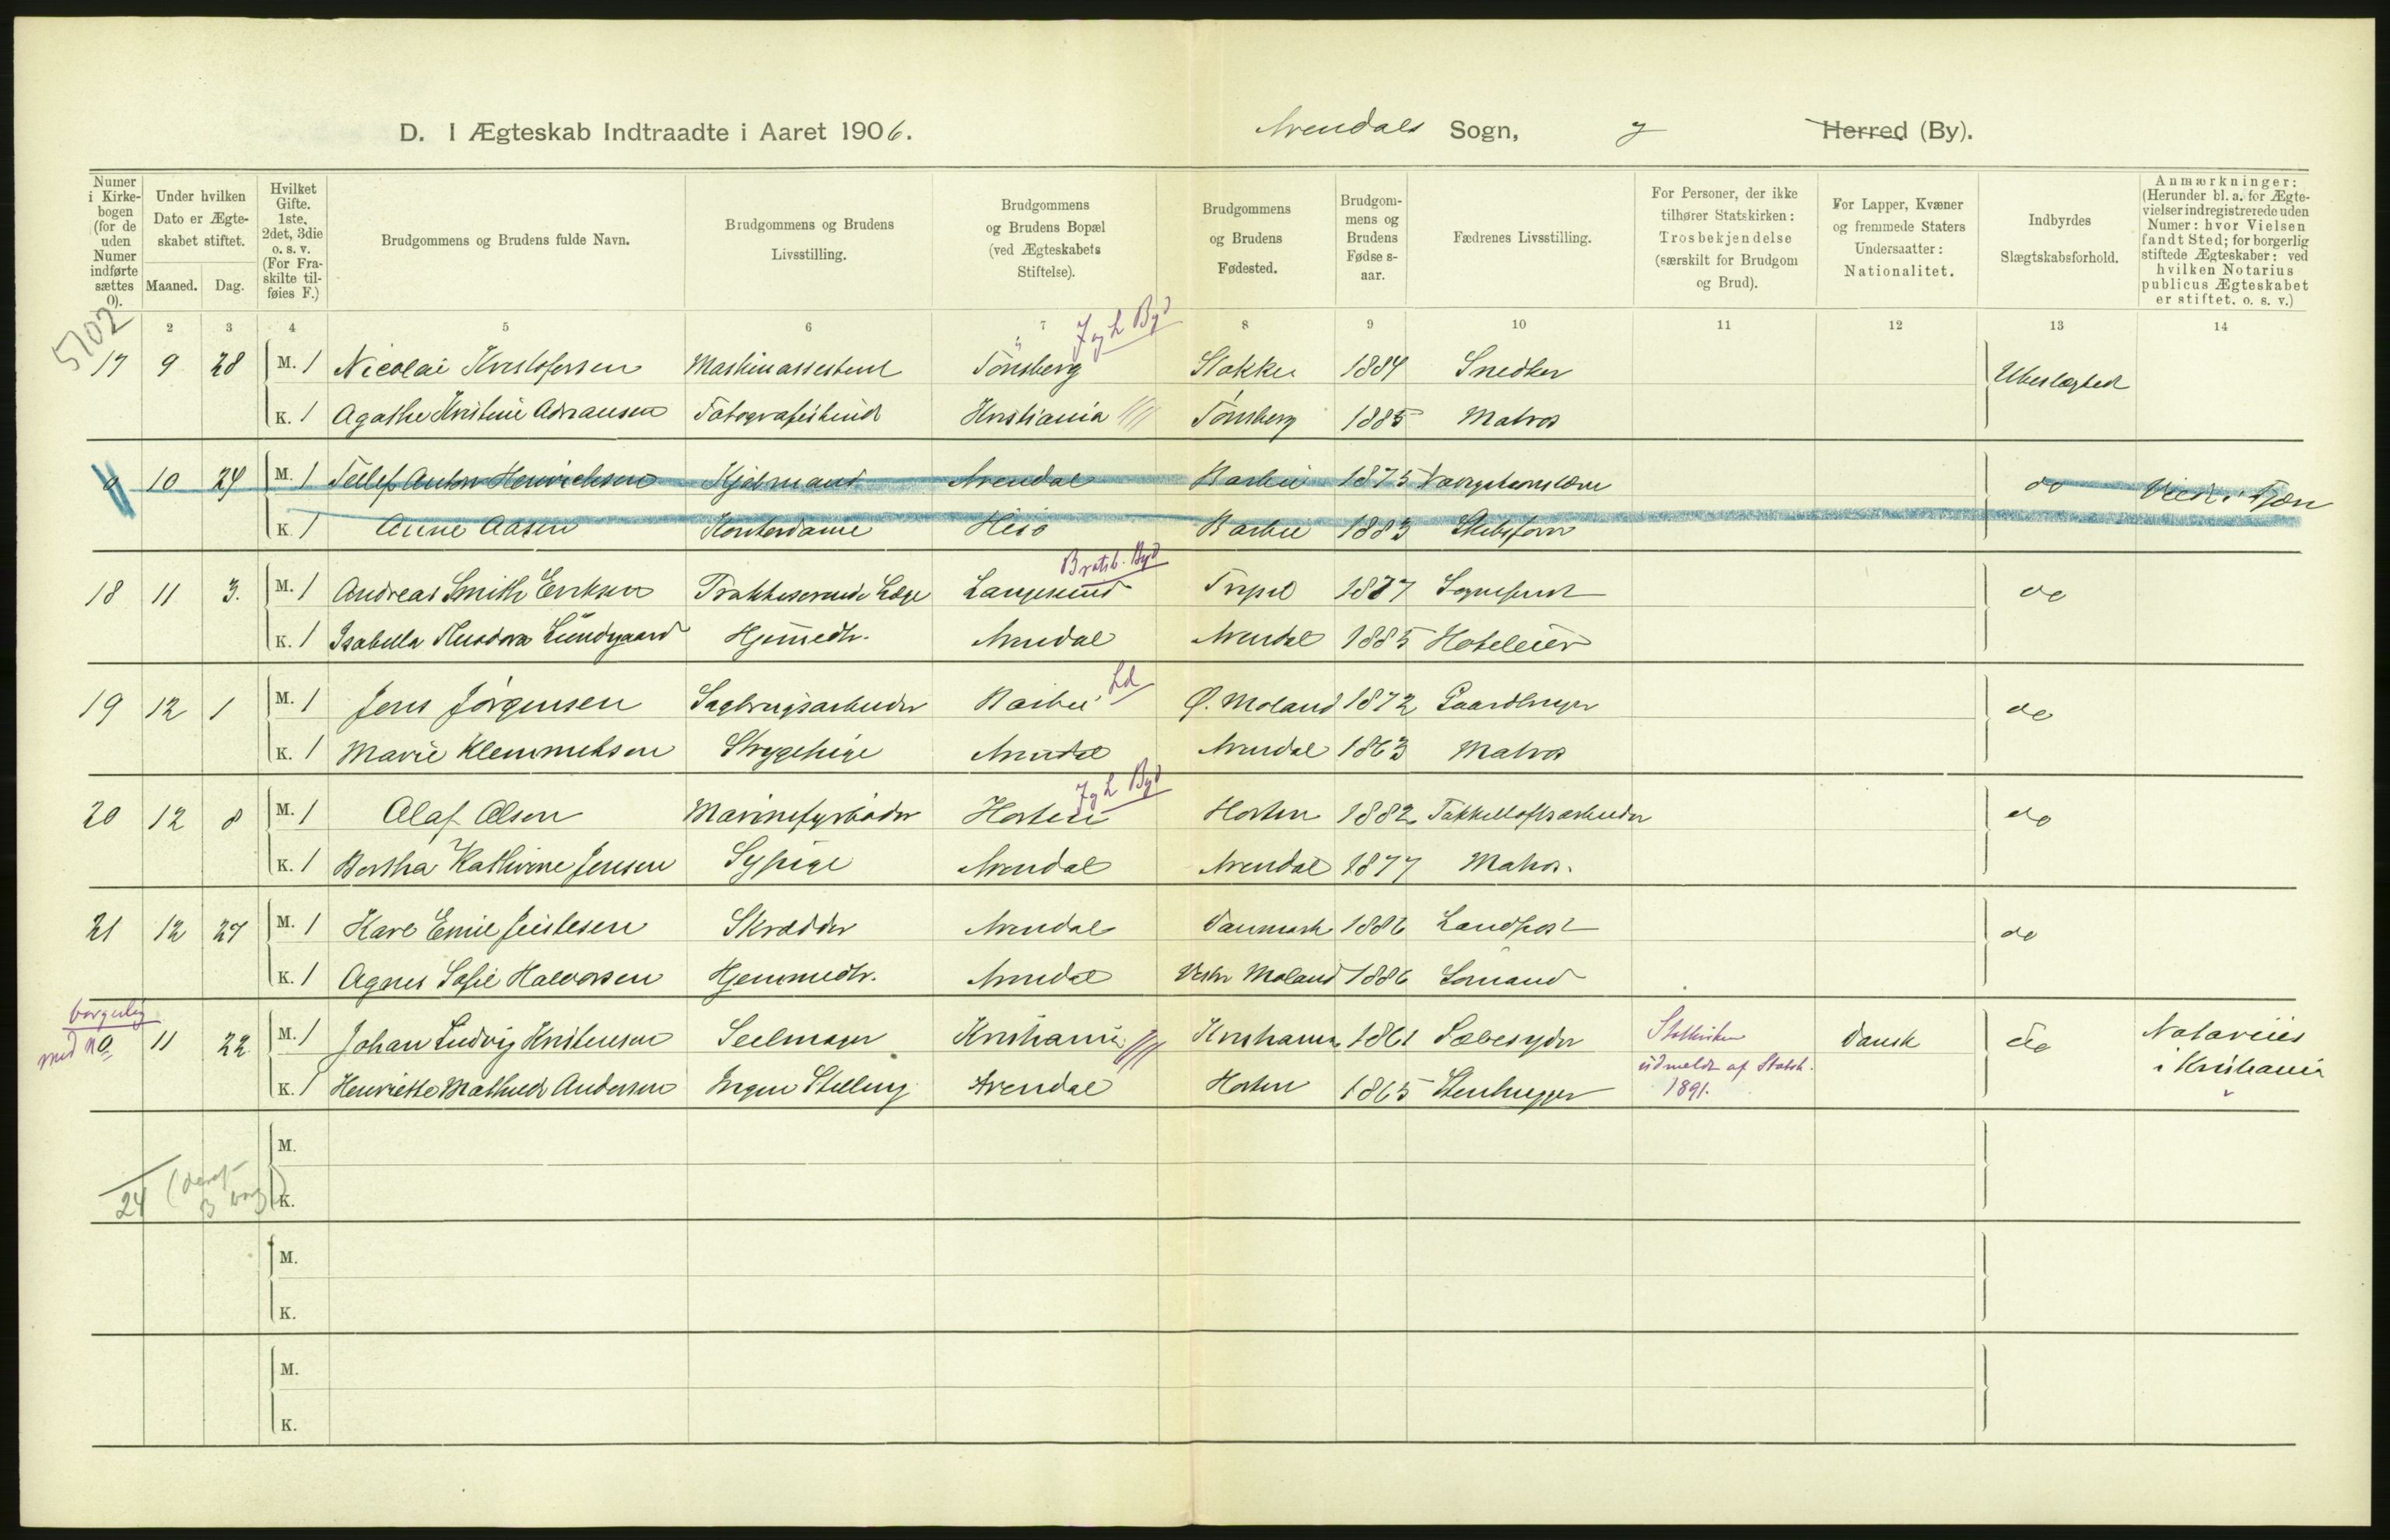 D. I Ægteskab Indtraadte i Aaret 1906. Arendals Sogn, Herred (By).
Numer i Kirkebogen (for de uden Numer indførte sættes 0).
Under hvilken Dato er Ægteskabet stiftet.
Maaned. Dag.
Hvilket Gifte. 1ste, 2det, 3die o. s. v. (For Fraskilte tilføies F.)
Brudgommens og Brudens fulde Navn.
Brudgommens og Brudens Livsstilling.
Brudgommens og Brudens Bopæl (ved Ægteskabets Stiftelse).
Brudgommens og Brudens Fødested.
Brudgommens og Brudens Fødselsaar.
Fædrenes Livsstilling.
For Personer, der ikke tilhører Statskirken: Trosbekjendelse (særskilt for Brudgom og Brud).
For Lapper, Kvæner og fremmede Staters Undersaatter: Nationalitet.
Indbyrdes Slægtskabsforhold.
Anmærkninger: (Herunder bl. a. for Ægtevielser indregistrerede uden Numer: hvor Vielsen fandt Sted; for borgerlig stiftede Ægteskaber: ved hvilken Notarius publicus Ægteskabet er stiftet. o. s. v.)
2 3 4 5 6 7 8 9 10 11 12 13 14
5702
17 9 28 M. 1 Nicolai Kristofersen Maskinassistent Tönsberg Stokke 1884 Snedker Ubeslægted
K. 1 Agathe Kristine Adriansen Fotografistinde Kristiania Tönsberg 1885 Matros
0 10 24 M. 1 Tellef Anton Henrichsen Arendal Barbu 1875 do
K. 1 Anne Aasen Kontordame Hisø Barbu 1883
Bratsb. Byd
18 11 3. M. 1 Andreas Smith Eriksen Praktiserende Læge Langesund 1877 Sogneprest do
K. 1 Isabella Theodora Lundgaard Hjemmedtr. Arendal Arendal 1885 Hoteleier
Ld
19 12 1 M. 1 Jens Jörgensen Sagbrugsarbeider Barbu Ø. Moland 1872 Gaardbruger do
K. 1 Marie Klemmetsen Strygepige Arendal Arendal 1863 Matros
20 12 8 M. 1 Olaf Olsen Marinefyrbøder Horten Horten 1882 Takkelloftsarbeider do
K. 1 Bertha Kathrine Jensen Sypige Arendal Arendal 1877 Matros.
21 12 27 M. 1 Karl Emil Skrædder Arendal Danmark 1886 Landpost do
K. 1 Agnes Sofie Halvorsen Hjemmedtr. Arendal Vestre Moland 1886 Sømand
borgerlig
0 11 22 M. 1 Johan Ludvig Kristensen Seilmager Kristiania Kristiania 1861 Sæbesyder Statskirken Dansk do Notarius
med no K. 1 Henriette Mathilde Andersen Ingen Stilling Arendal Horten 1865 Stenhugger udmeldt af Statsk. 1891. i Kristiania
M.
24 (deraf 3 borg) K.
M.
K.
M.
K.